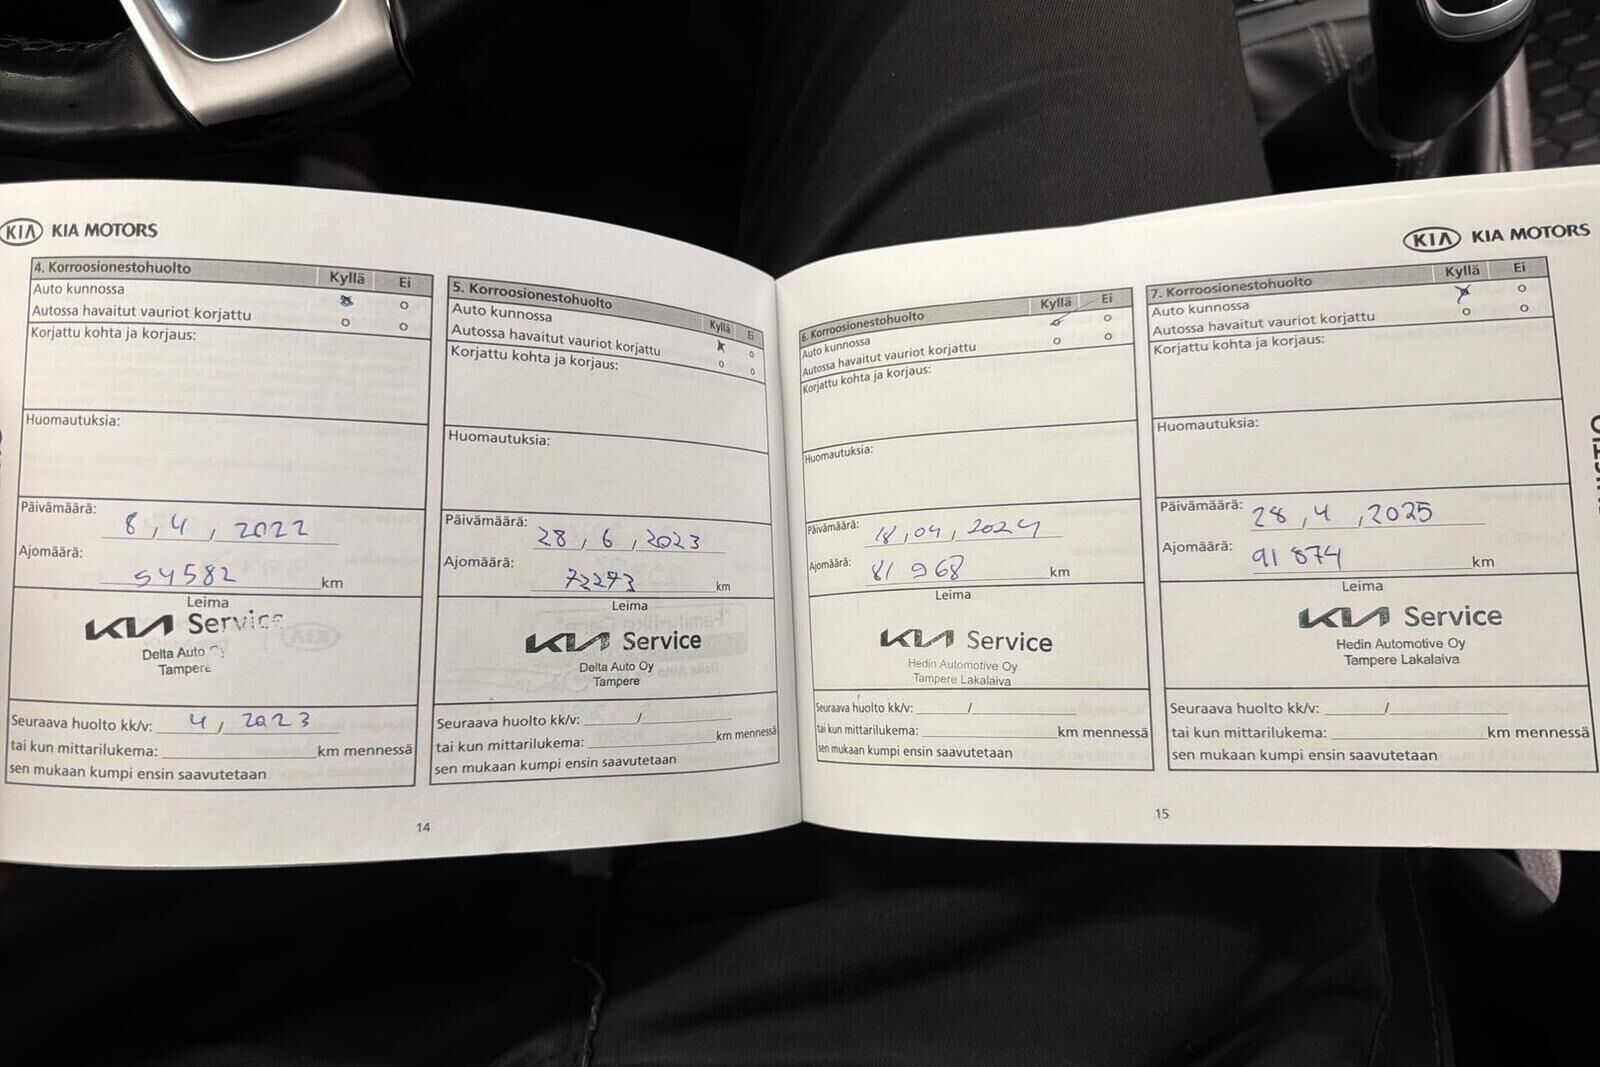 KIA MOTORS
4. Korroosionestohuolto Kyllä Ei
Auto kunnossa
Autossa havaitut vauriot korjattu
Korjattu kohta ja korjaus:
Huomautuksia:
Päivämäärä: 8, 4, 2022
Ajomäärä: 54582 km
Leima
KIA Service
Delta Auto Oy
Tampere
Seuraava huolto kk/v: 4, 2023
tai kun mittarilukema: km mennessä
sen mukaan kumpi ensin saavutetaan
5. Korroosionestohuolto Kyllä Ei
Auto kunnossa
Autossa havaitut vauriot korjattu
Korjattu kohta ja korjaus:
Huomautuksia:
Päivämäärä: 28, 6, 2023
Ajomäärä: 72273 km
Leima
KIA Service
Delta Auto Oy
Tampere
Seuraava huolto kk/v: /
tai kun mittarilukema: km mennessä
sen mukaan kumpi ensin saavutetaan
14
KIA KIA MOTORS
6. Korroosionestohuolto Kyllä Ei
Auto kunnossa
Autossa havaitut vauriot korjattu
Korjattu kohta ja korjaus:
Huomautuksia:
Päivämäärä: 18, 04, 2024
Ajomäärä: 81 968 km
Leima
KIA Service
Hedin Automotive Oy
Tampere Lakalaiva
Seuraava huolto kk/v: /
tai kun mittarilukema: km mennessä
sen mukaan kumpi ensin saavutetaan
7. Korroosionestohuolto Kyllä Ei
Auto kunnossa
Autossa havaitut vauriot korjattu
Korjattu kohta ja korjaus:
Huomautuksia:
Päivämäärä: 28, 4, 2025
Ajomäärä: 91 874 km
Leima
KIA Service
Hedin Automotive Oy
Tampere Lakalaiva
Seuraava huolto kk/v: /
tai kun mittarilukema: km mennessä
sen mukaan kumpi ensin saavutetaan
15